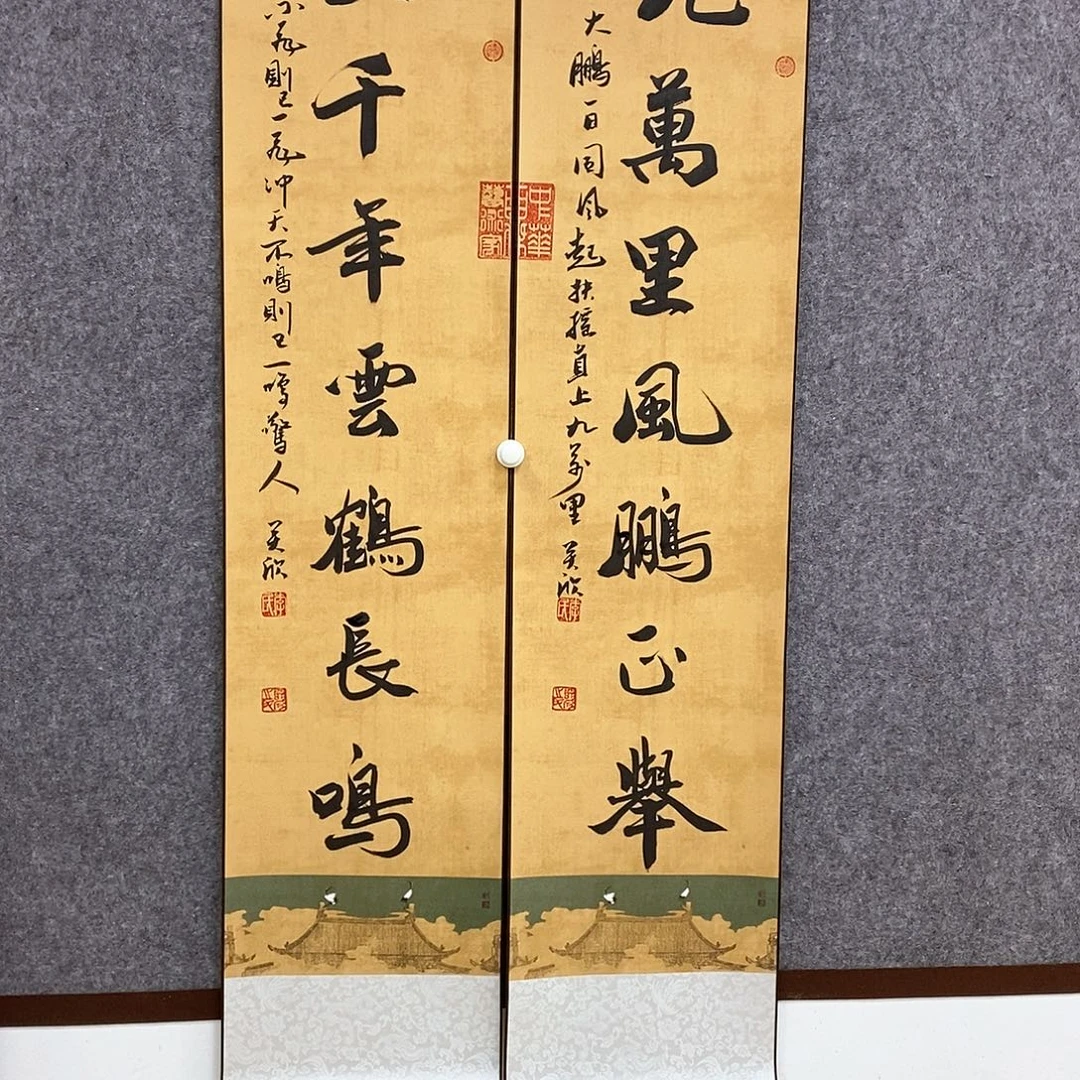 九萬里風鵬正舉
大鵬一日同風起扶搖直上九萬里 美欣
千年雲鶴長鳴
飛則已一飛沖天不鳴則已一鳴驚人 美欣